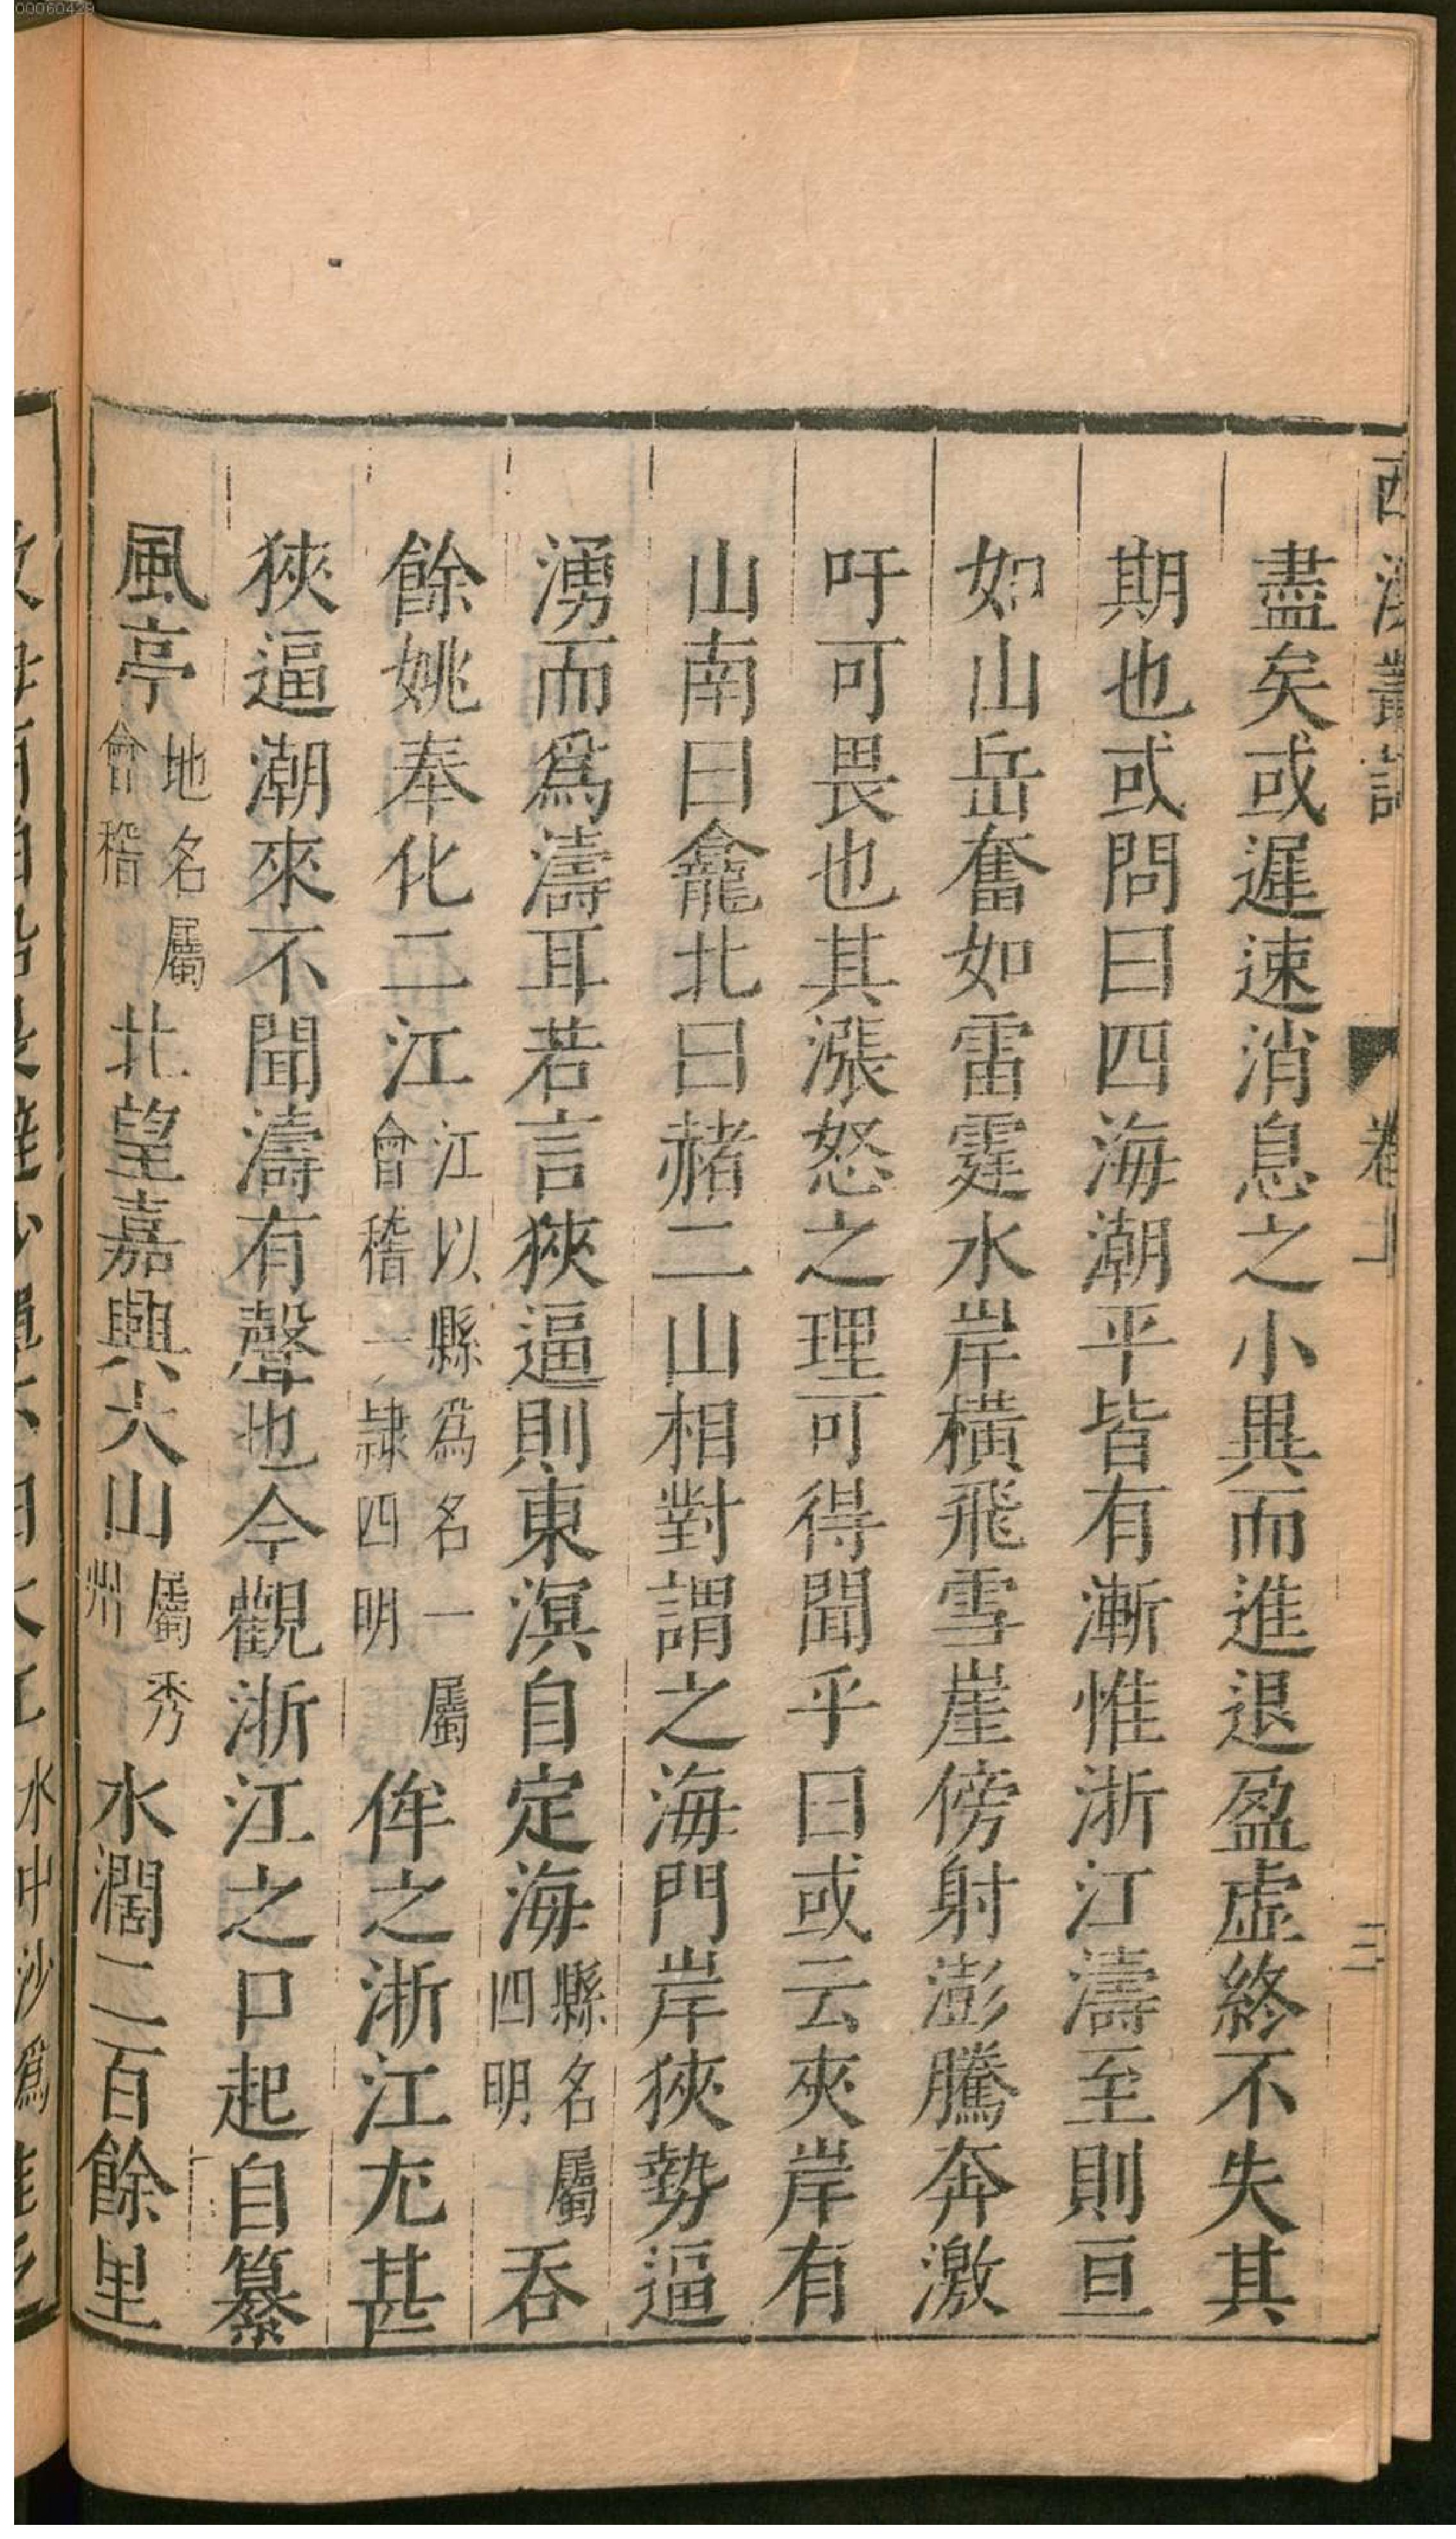 00060429
西溪叢語 卷上 三
盡矣或遲速消息之小異而進退盈虛終不失其
期也或問曰四海潮平皆有漸惟浙江濤至則亘
如山岳奮如雷霆水岸橫飛雪崖傍射澎騰奔激
吁可畏也其漲怒之理可得聞乎曰或云夾岸有
山南曰龕北曰赭二山相對謂之海門岸狹勢逼
湧而爲濤耳若言狹逼則東溟自定海縣名屬四明吞
餘姚奉化二江江以縣爲名一屬會稽一隷四明侔之浙江尤甚
狹逼潮來不聞濤有聲也今觀浙江之口起自纂
風亭地名屬會稽北望嘉興大山屬秀州水濶二百餘里
水中沙爲